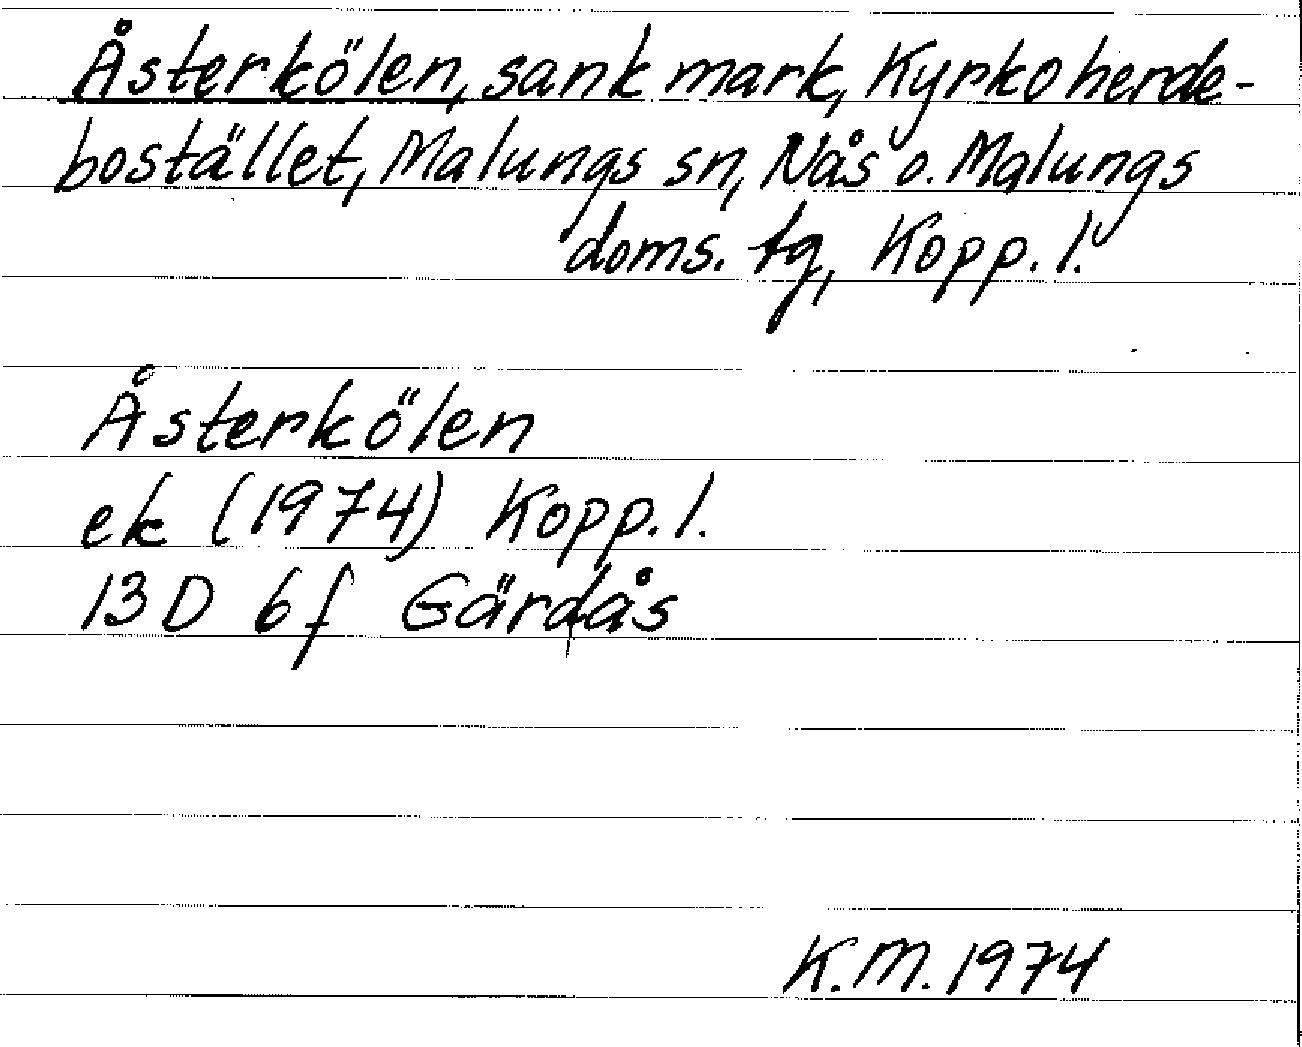 Åsterkölen, sank mark, Kyrkoherde-
bostället, Malungs sn, Nås o. Malungs
doms. tg, Kopp. l.
Åsterkölen
ek (1974) Kopp. l.
13D 6f Gärdås
K.M. 1974